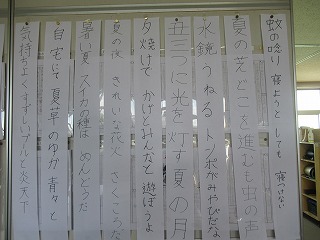 蚊の唸り 寝ようとしても 寝つけない
夏の芝 どこを進むも虫の声
水鏡 うねる トンボがみやびだな
丑三つに光を灯す夏の月
夕焼けで かげとみんなと 遊ぼうよ
夏の夜 きれいな花火 さくころだ
暑い夏 スイカの種は めんどうだ
自宅にて 夏草のゆか 青々と
気持ちよくすずしいプールと炎天下